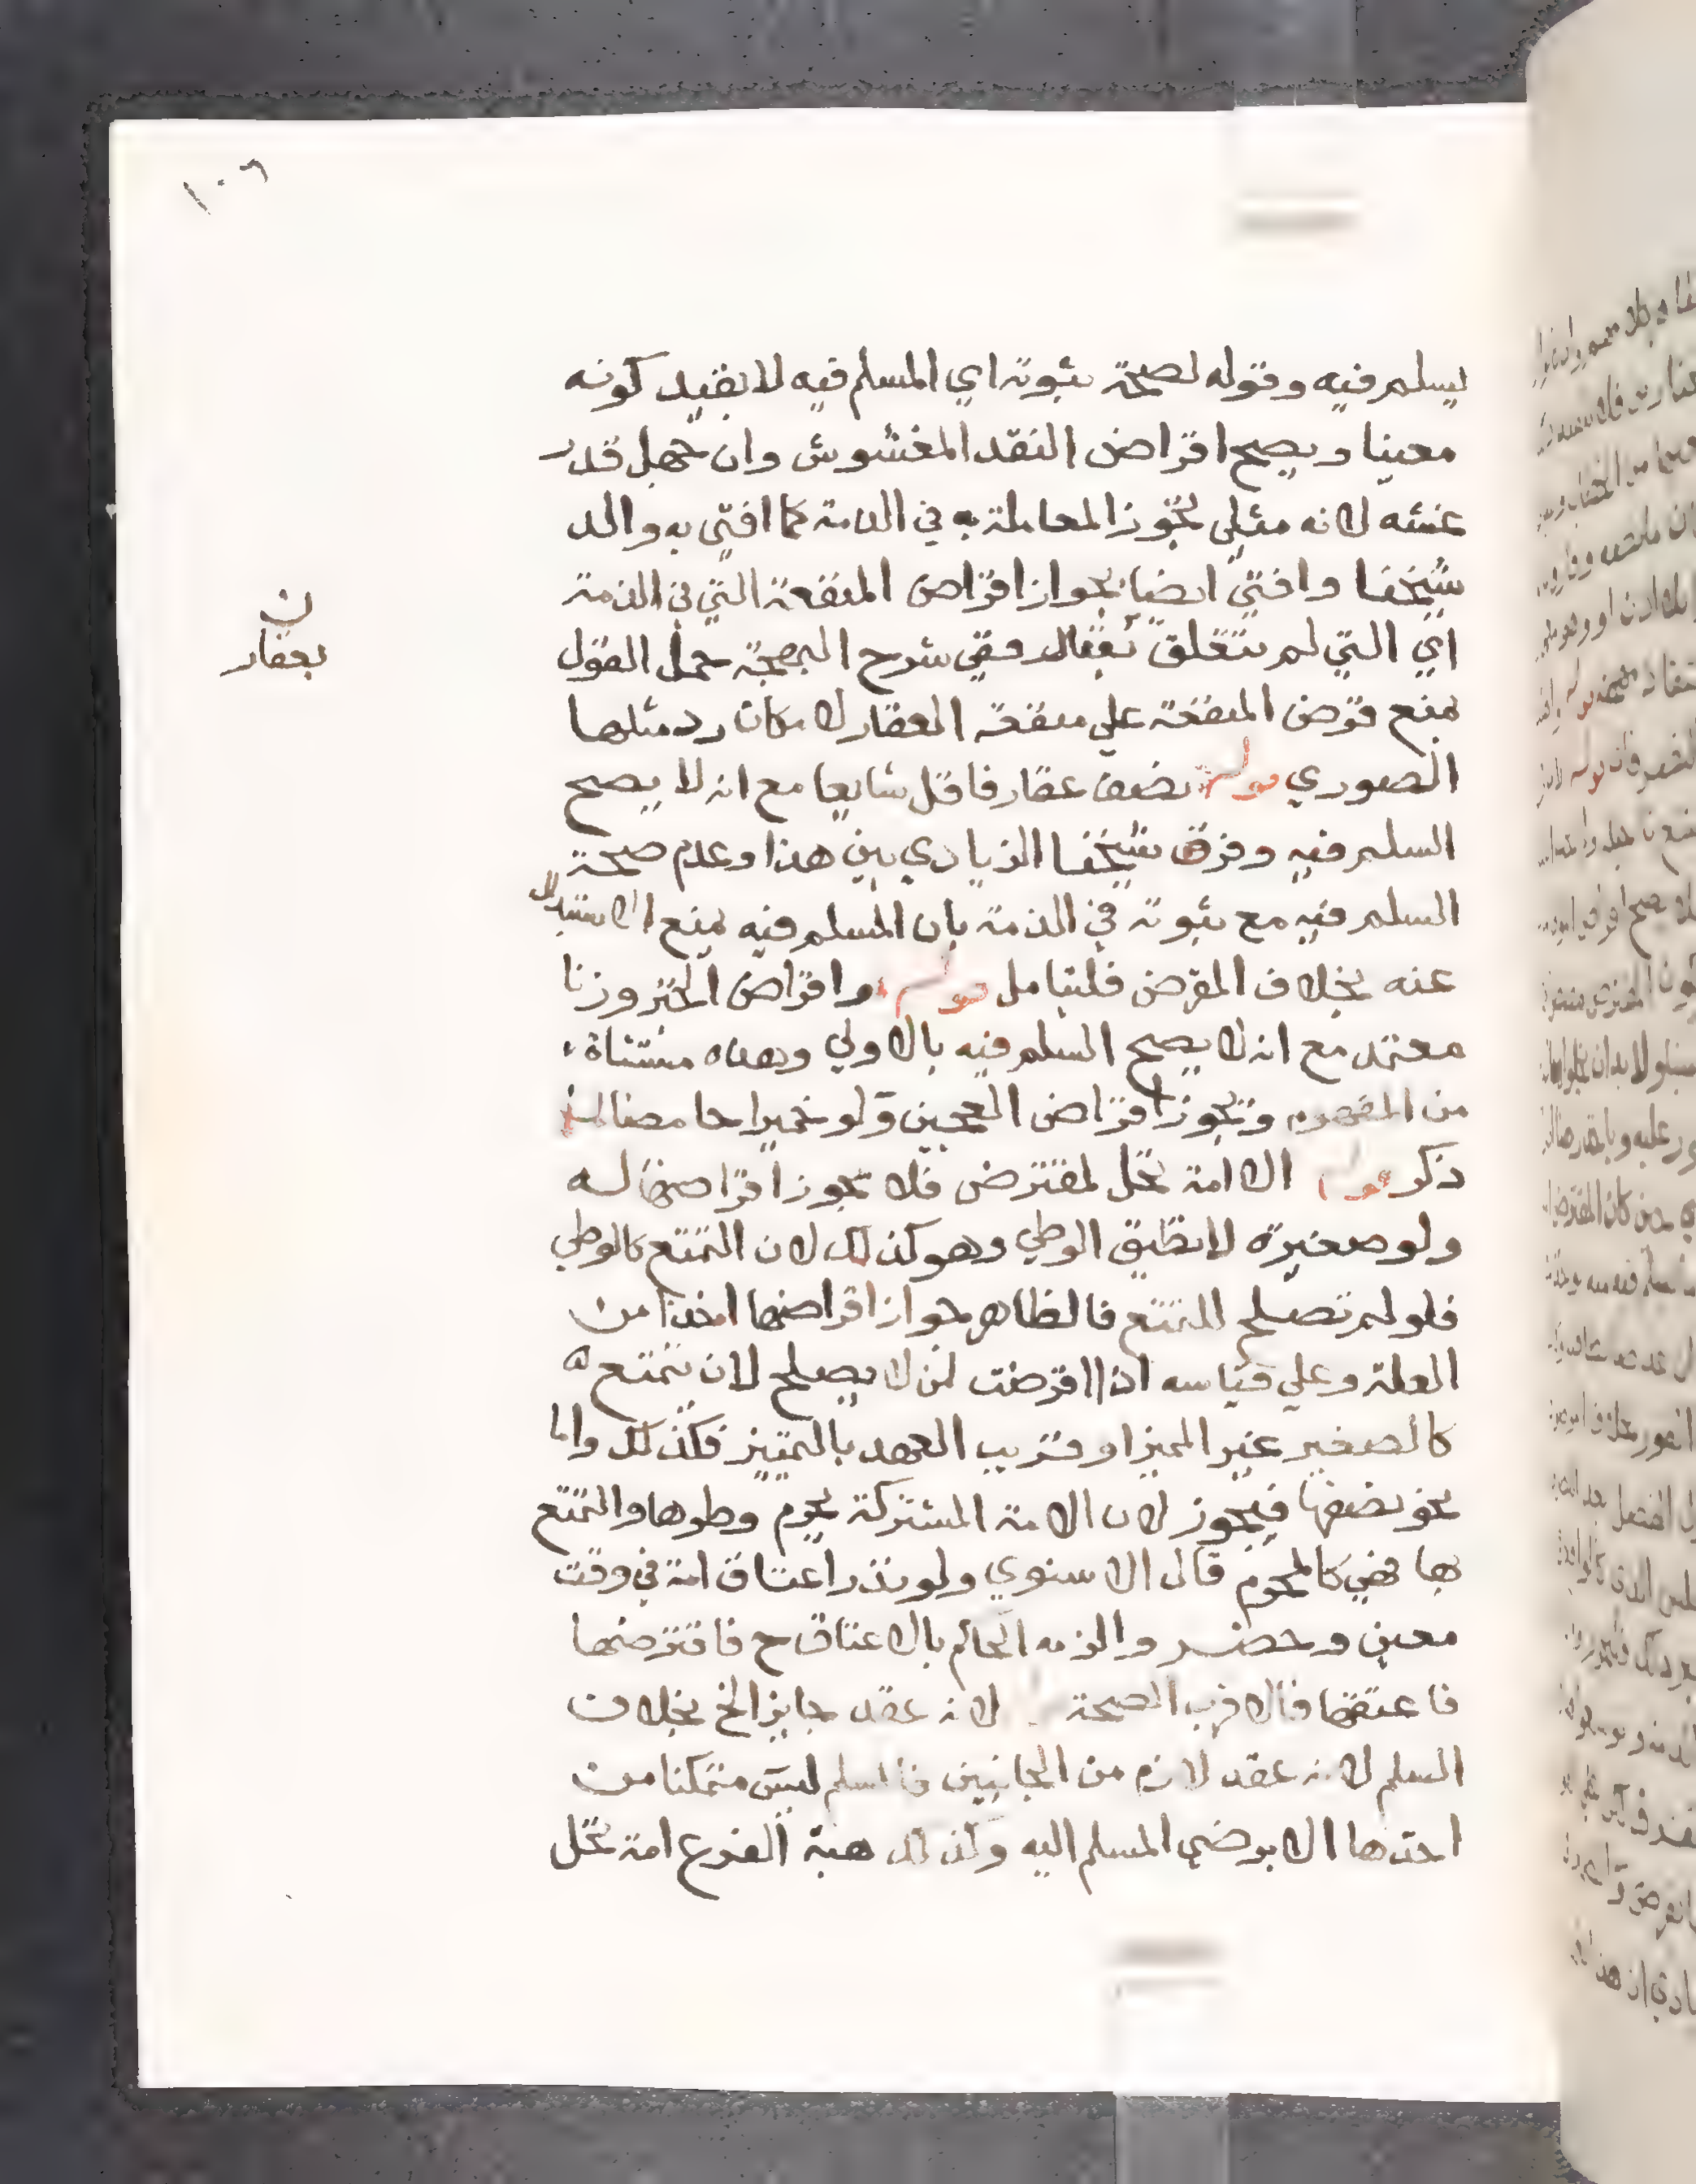 ١٠٦
يسلم فيه وقوله لصحة ثبوته اي المسلم فيه لا بقيد كونه
معينا ويصح اقراض النقد المغشوش وان جهل قدر
غشه لانه مثلي تجوز المعاملة به في الذمة كما افتى به والد
شيخنا وافتى ايضا بجواز اقراض المنفعة التي في الذمة
اي التي لم تتعلق بعقار ففي شرح البهجة حمل القول
ن
بعقار
بمنع قرض المنفعة على منفعة العقار لامكان رد مثلها
الصوري قوله نصف عقار فاقل شايعا مع انه لا يصح
السلم فيه وفرق شيخنا الزيادي بين هذا وعدم صحة
السلم فيه مع ثبوته في الذمة بان المسلم فيه يمنع الاستبدال
عنه بخلاف القرض فليتامل قوله واقراض الخبز وزنا
معتمد مع انه لا يصح السلم فيه بالاولى وهذه مستثناة
من المفهوم وتجوز اقراض العجين ولو خميرا حامضا لما
ذكر قوله الا امة تحل لمقترض فلا يجوز اقراضها له
ولو صغيرة لا تطيق الوطي وهو كذلك لان التمتع كالوطي
فلو لم تصلح للتمتع فالظاهر جواز اقراضها اخذا من
العلة وعلى قياسه اذا اقرضت لمن لا يصلح لان يتمتع
كالصغير غير المميز او قريب العهد بالتمييز فكذلك واما
نحو نصفها فيجوز لان الامة المشتركة يحرم وطوها والتمتع
بها فهي كالمحرم قال الاسنوي ولو نذر اعتاق امة في وقت
معين وحضر والزمه الحاكم بالاعتاق ح فاقترضها
فاعتقها فالاقرب الصحة لانه عقد جايز الخ بخلاف
السلم لانه عقد لازم من الجانبين فالمسلم ليس متمكنا من
اخذها الا برضى المسلم اليه وكذلك هبة الفرع امة تحل